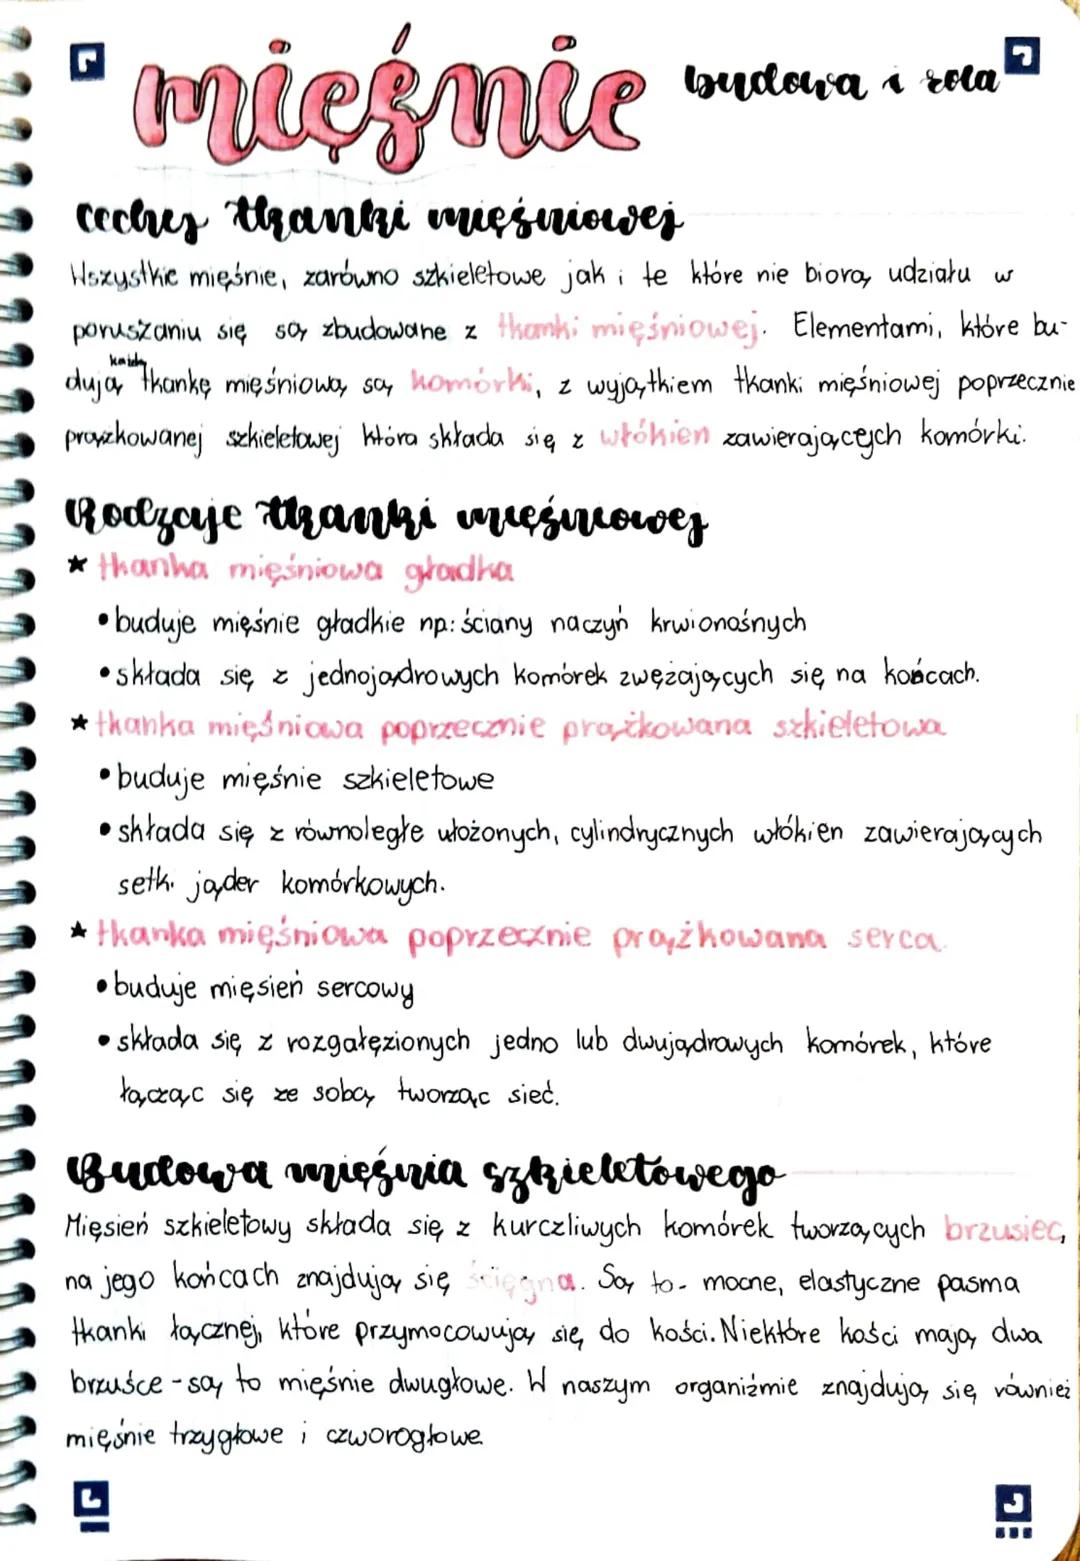 mięśnie budowa i rola
cechy tkanki mięśniowej
Wszystkie mięśnie, zarówno szkieletowe jak i te które nie biorą udziału w
poruszaniu się są zbudowane z tkanki mięśniowej. Elementami, które bu-
dują każdą tkankę mięśniową są komórki, z wyjątkiem tkanki mięśniowej poprzecznie
prążkowanej szkieletowej która składa się z włókien zawierających komórki.
Rodzaje tkanki mięśniowej
★ tkanka mięśniowa gładka
• buduje mięśnie gładkie np: ściany naczyń krwionośnych
• składa się z jednojądrowych komórek zwężających się na końcach.
★ tkanka mięśniowa poprzecznie prążkowana szkieletowa
• buduje mięśnie szkieletowe
• składa się z równoległe ułożonych, cylindrycznych włókien zawierających
setki jąder komórkowych.
★ tkanka mięśniowa poprzecznie prążkowana serca
• buduje mięsień sercowy
• składa się z rozgałęzionych jedno lub dwujądrowych komórek, które
łącząc się ze sobą tworząc sieć.
Budowa mięśnia szkieletowego
Mięsień szkieletowy składa się z kurczliwych komórek tworzących brzusiec,
na jego końcach znajdują się ścięgna. Są to - mocne, elastyczne pasma
tkanki łącznej, które przymocowują się do kości. Niektóre kości mają dwa
brzuśce - są to mięśnie dwugłowe. W naszym organiźmie znajdują się również
mięśnie trzygłowe i czworogłowe